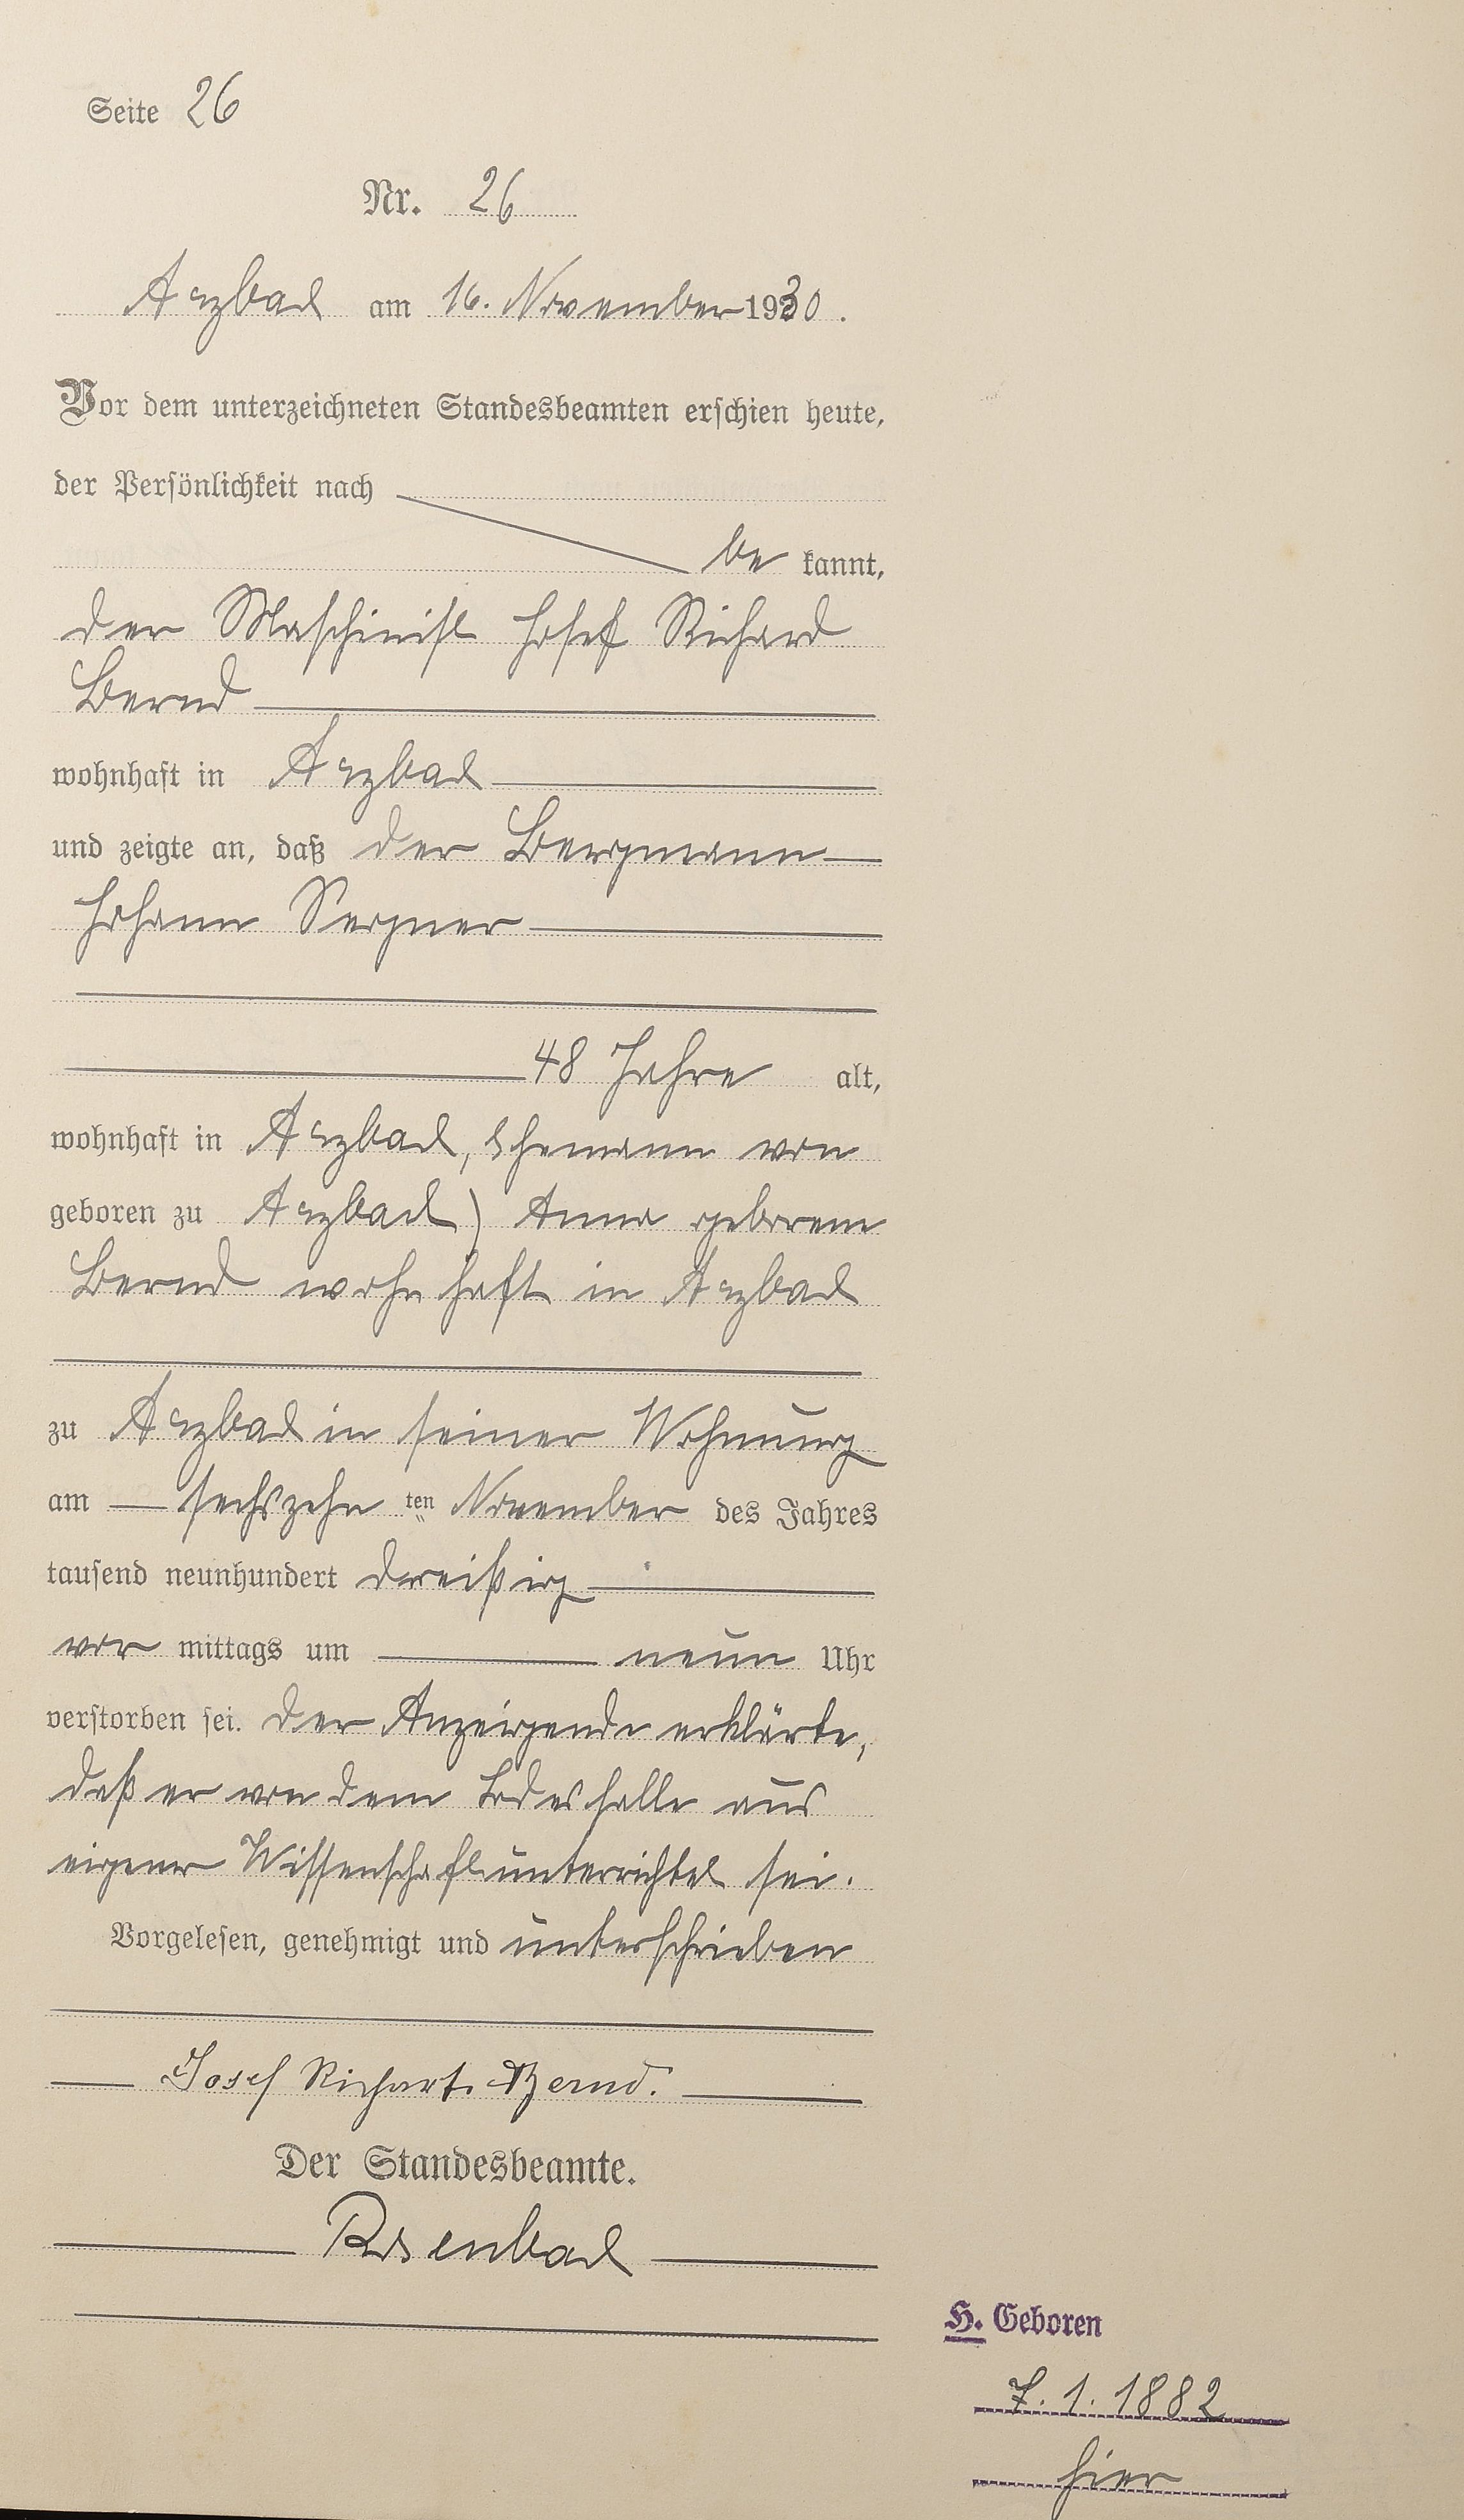 Seite 26
Nr. 26
Arzbach am 16. November 1930.
Vor dem unterzeichneten Standesbeamten erschien heute,
der Persönlichkeit nach
be kannt,
der Maschinist Josef Richard
Bernd
wohnhaft in Arzbach
und zeigte an, daß der Bergmann
Johann Pergner
48 Jahre alt,
wohnhaft in Arzbach, Ehemann von
geboren zu Arzbach) Anna geborene
Bernd wohnhaft in Arzbach
zu Arzbach in seiner Wohnung
am sechszehn ten November des Jahres
tausend neunhundert dreißig
vor mittags um neun Uhr
verstorben sei. Der Anzeigende erklärte,
daß er von dem Todesfalle aus
eigener Wissenschaft unterrichtet sei.
Vorgelesen, genehmigt und unterschrieben
Josef Richart Bernd.
Der Standesbeamte.
Rosenbach
H. Geboren
7. 1. 1882
hier